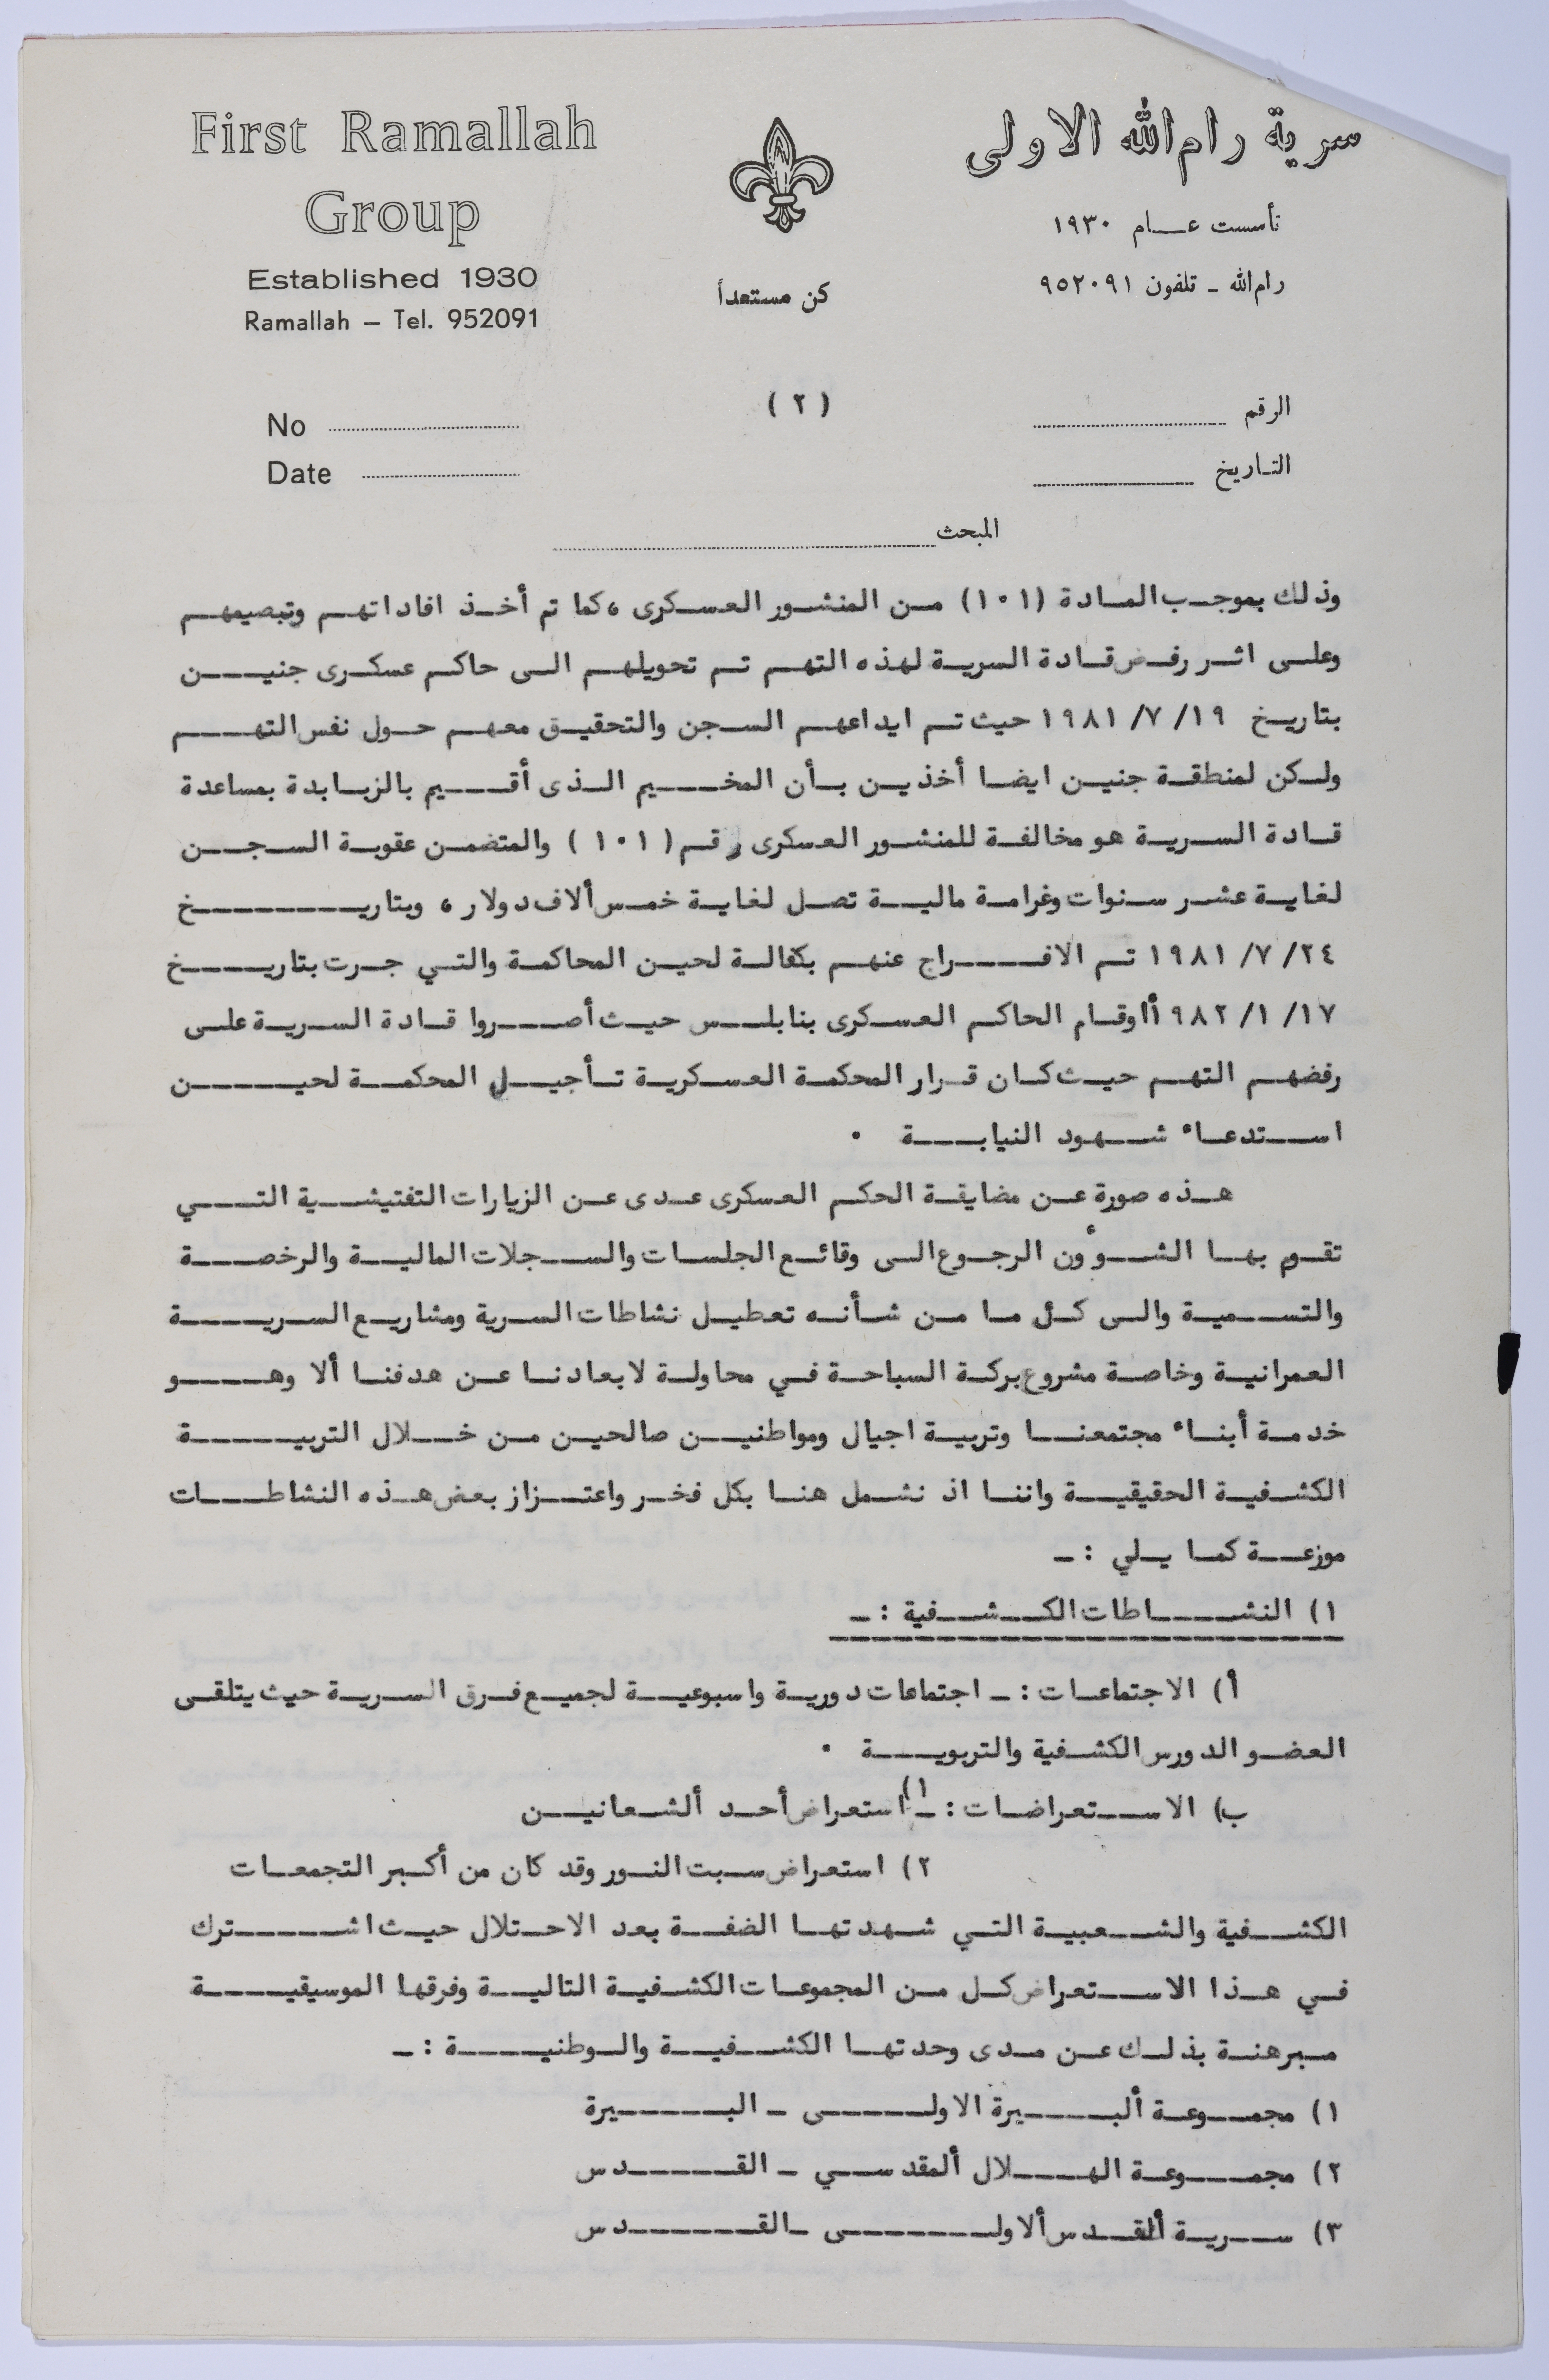 First Ramallah
Group
Established 1930
Ramallah – Tel. 952091
كن مستعداً
سرية رام الله الاولى
تأسست عام ١٩٣٠
رام الله - تلفون ٩٥٢٠٩١
(٢)
No
Date
الرقم
التاريخ
المبحث
وذلك بموجب المادة (١٠١) من المنشور العسكرى ، كما تم أخذ افاداتهم وتبصيمهم
وعلى اثر رفض قادة السرية لهذه التهم تم تحويلهم الى حاكم عسكرى جنين
بتاريخ ١٩/ ٧/ ١٩٨١ حيث تم ايداعهم السجن والتحقيق معهم حول نفس التهم
ولكن لمنطقة جنين ايضا أخذين بأن المخيم الذى أقيم بالزبابدة بمساعدة
قادة السرية هو مخالفة للمنشور العسكرى رقم ( ١٠١ ) والمتضمن عقوبة السجن
لغاية عشر سنوات وغرامة مالية تصل لغاية خمس ألاف دولار ، وبتاريخ
٢٤/ ٧/ ١٩٨١ تم الافراج عنهم بكفالة لحين المحاكمة والتي جرت بتاريخ
١٧/ ١/ ٩٨٢أاوقام الحاكم العسكرى بنابلس حيث أصروا قادة السرية على
رفضهم التهم حيث كان قرار المحكمة العسكرية تأجيل المحكمة لحين
استدعاء شهود النيابة .
هذه صورة عن مضايقة الحكم العسكرى عدى عن الزيارات التفتيشية التي
تقوم بها الشؤون الرجوع الى وقائع الجلسات والسجلات المالية والرخصة
والتسمية والى كل ما من شأنه تعطيل نشاطات السرية ومشاريع السرية
العمرانية وخاصة مشروع بركة السباحة في محاولة لابعادنا عن هدفنا ألا وهو
خدمة أبناء مجتمعنا وتربية اجيال ومواطنين صالحين من خلال التربية
الكشفية الحقيقية واننا اذ نشمل هنا بكل فخر واعتزاز بعض هذه النشاطات
موزعة كما يلي :-
١) النشاطات الكشفية :-
أ) الاجتماعات :- اجتماعات دورية واسبوعية لجميع فرق السرية حيث يتلقى
العضو الدورس الكشفية والتربوية .
ب) الاستعراضات :- ١) استعراض أحد ألشعانين
٢) استعراض سبت النور وقد كان من أكبر التجمعات
الكشفية والشعبية التي شهدتها الضفة بعد الاحتلال حيث اشترك
في هذا الاستعراض كل من المجموعات الكشفية التالية وفرقها الموسيقية
مبرهنة بذلك عن مدى وحدتها الكشفية والوطنية :-
١) مجموعة ألبيرة الاولى - البيرة
٢) مجموعة الهلال ألمقدسي - القدس
٣) سرية ألقدس ألاولى - القدس